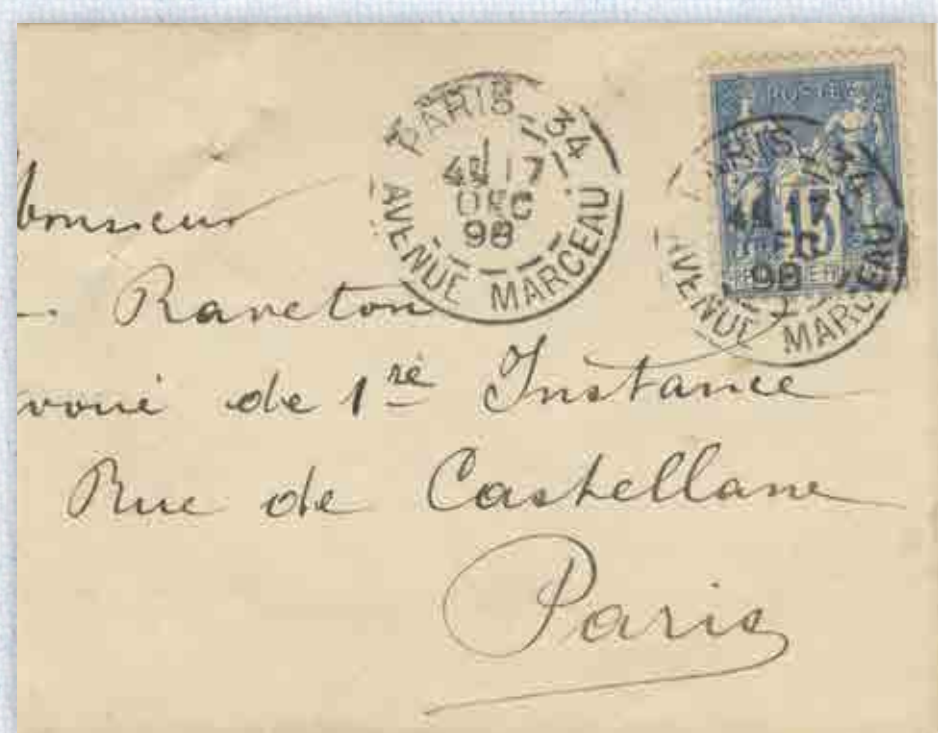 PARIS - 34
4E 17
DEC
98
AVENUE MARCEAU
POSTE
15
PARIS - 34
4E 17
98
AVENUE MARCEAU
Monsieur
Raveton
voué de 1re Instance
Rue de Castellane
Paris